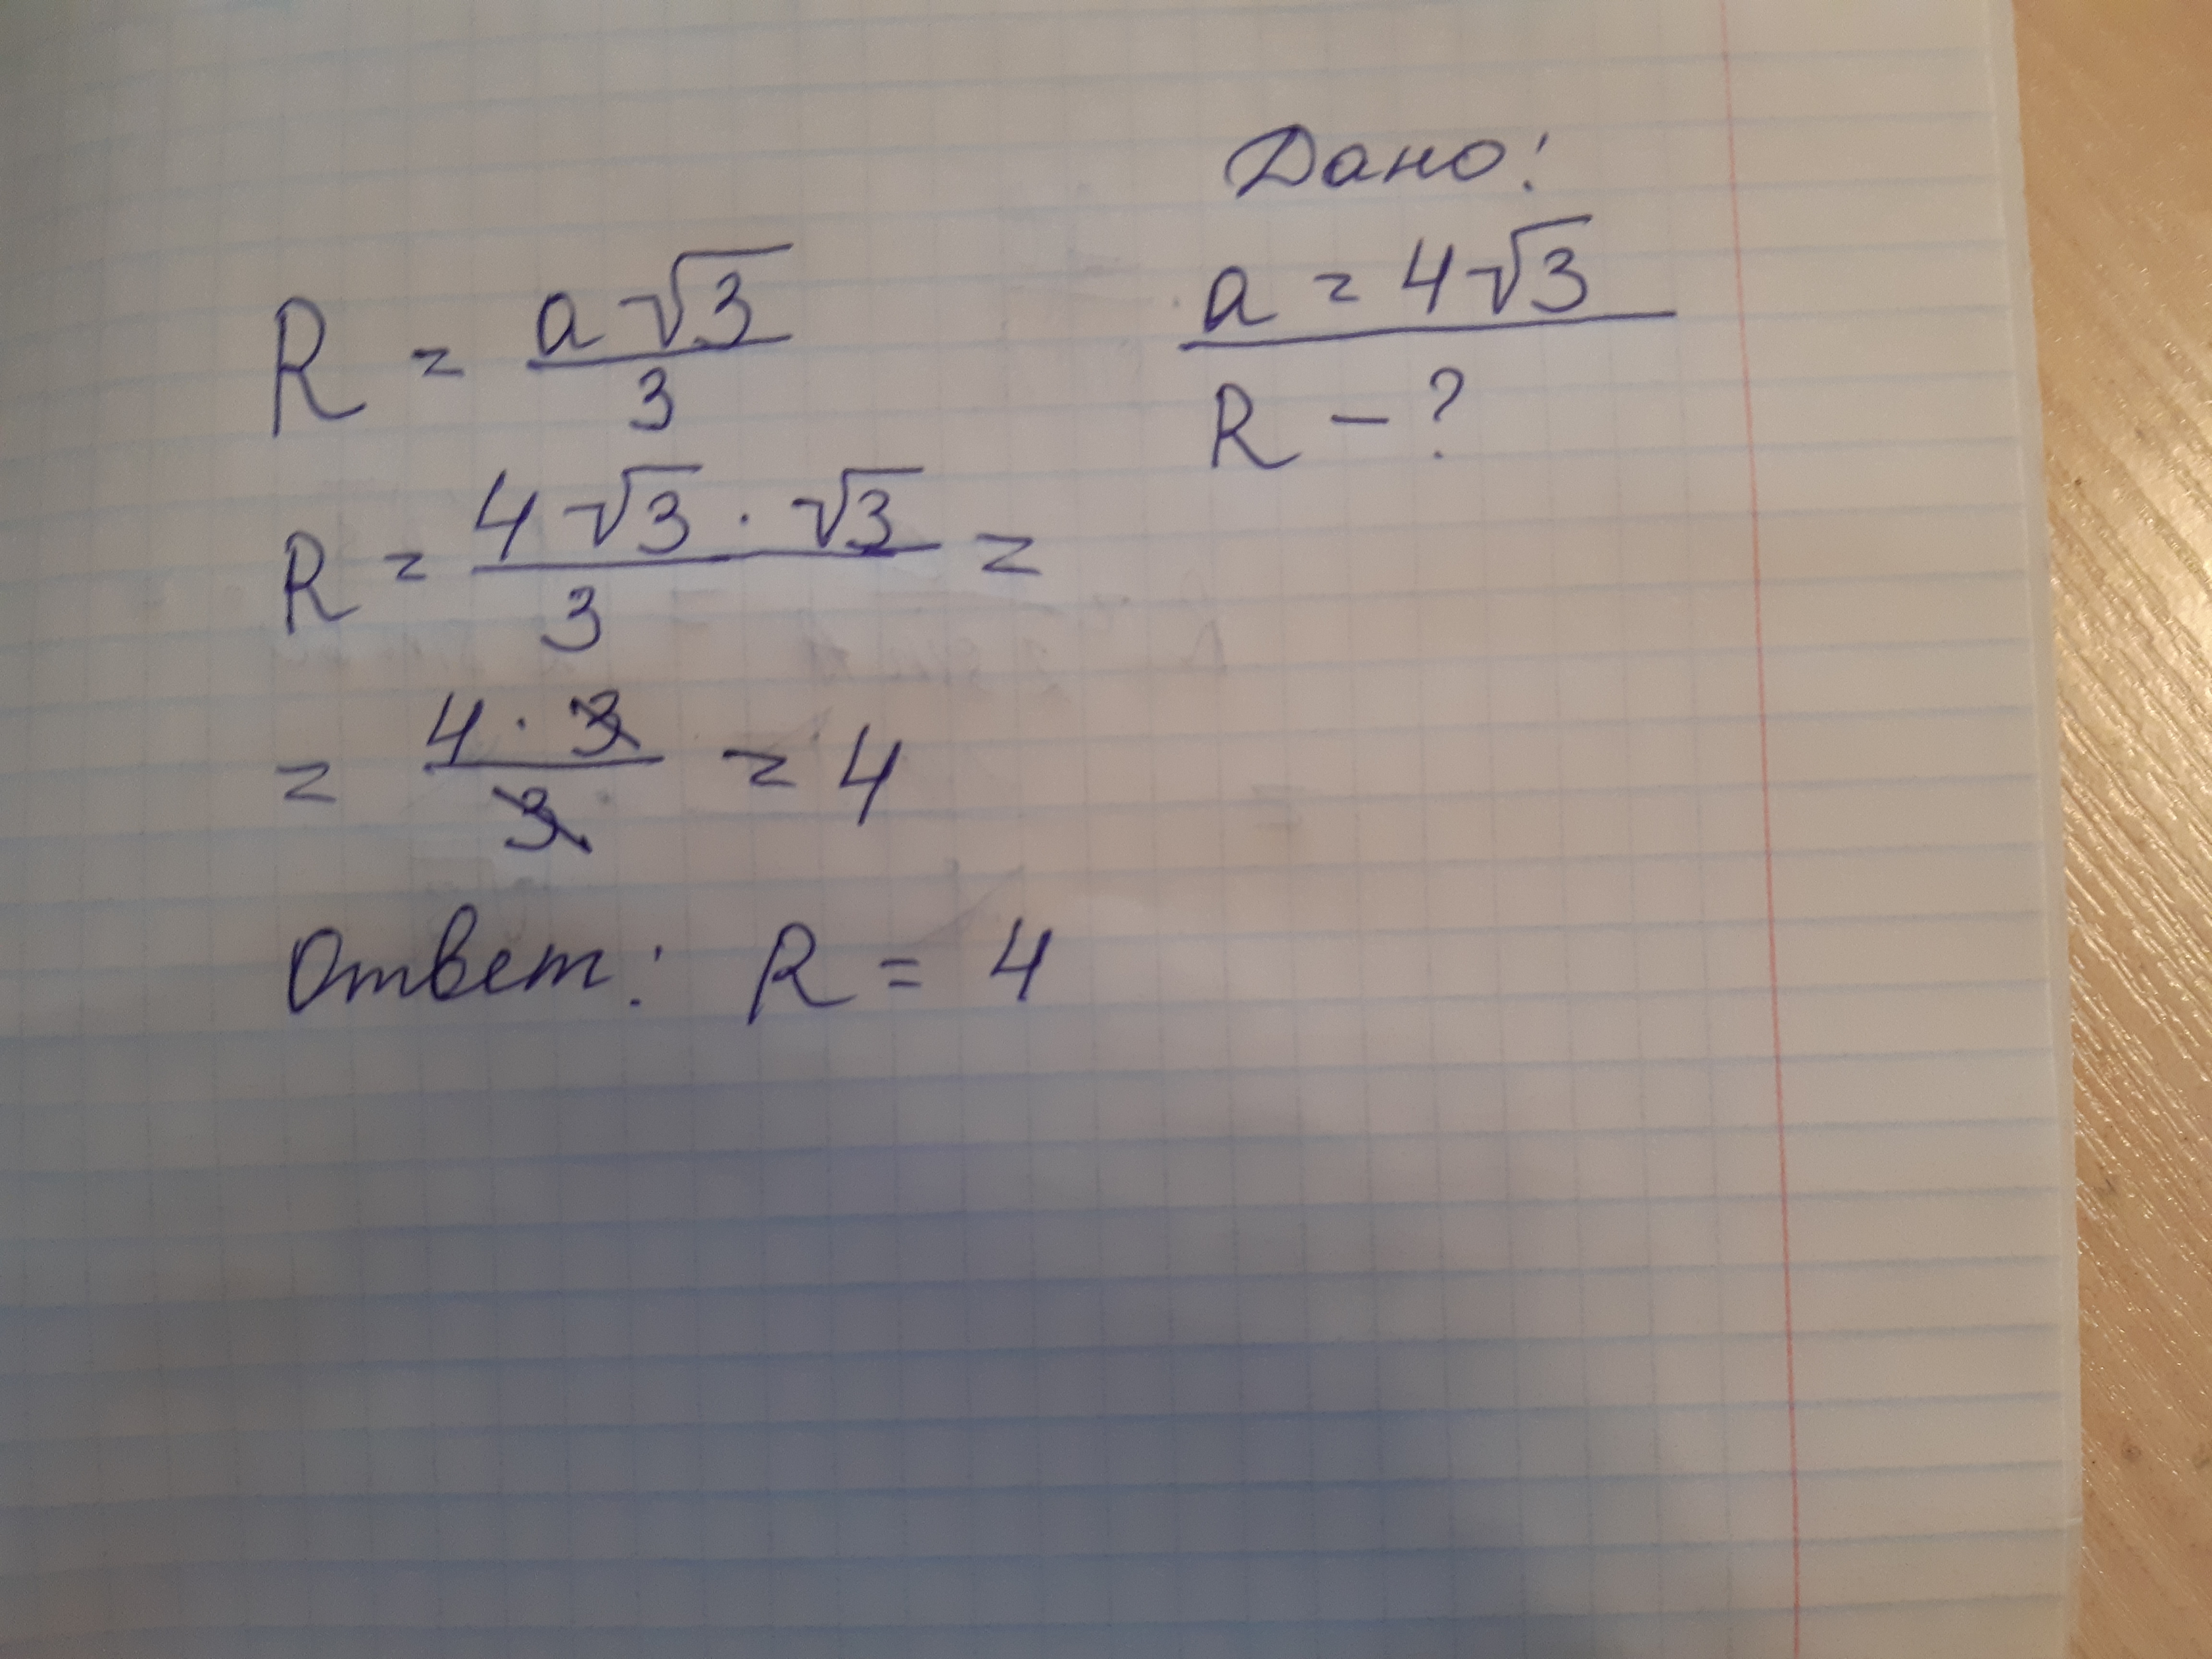 Дано:
a = 4√3
R - ?
R = a√3/3
R = 4√3 · √3/3 =
= 4 · 3/3 = 4
Ответ: R = 4